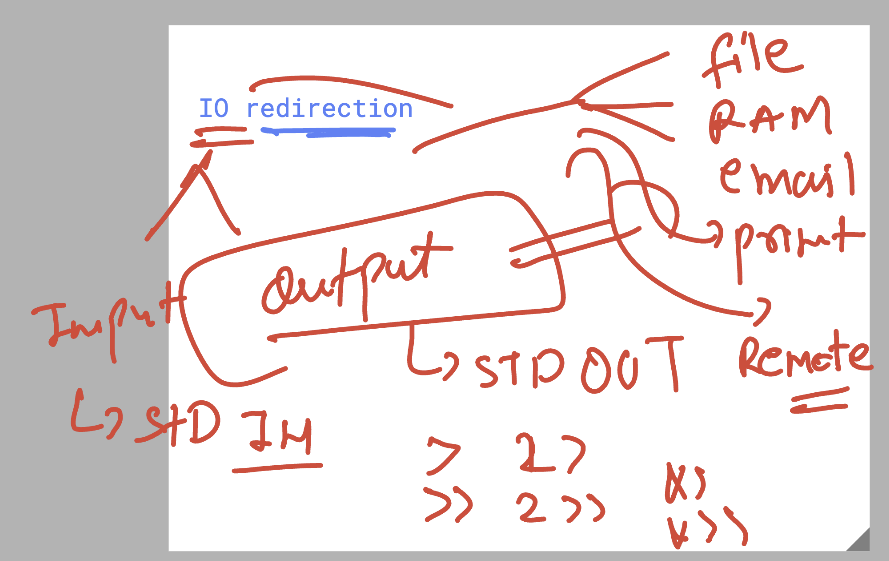 IO redirection
file
RAM
email
print
Remote
Input
Output
STD IN
STD OUT
> 2>
>> 2>>